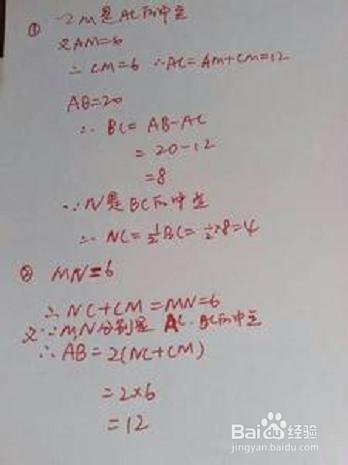 ① ∵M是AC的中点
又AM=6
∴ CM=6 ∴AC=AM+CM=12
AB=20
∴ BC= AB-AC
= 20-12
=8
∵N是BC的中点
∴ NC=½BC=½×8=4
② MN=6
∴NC+CM=MN=6
又∵MN分别是 AC.BC的中点
∴ AB=2(NC+CM)
=2×6
=12
Baidu经验
jingyan.baidu.com